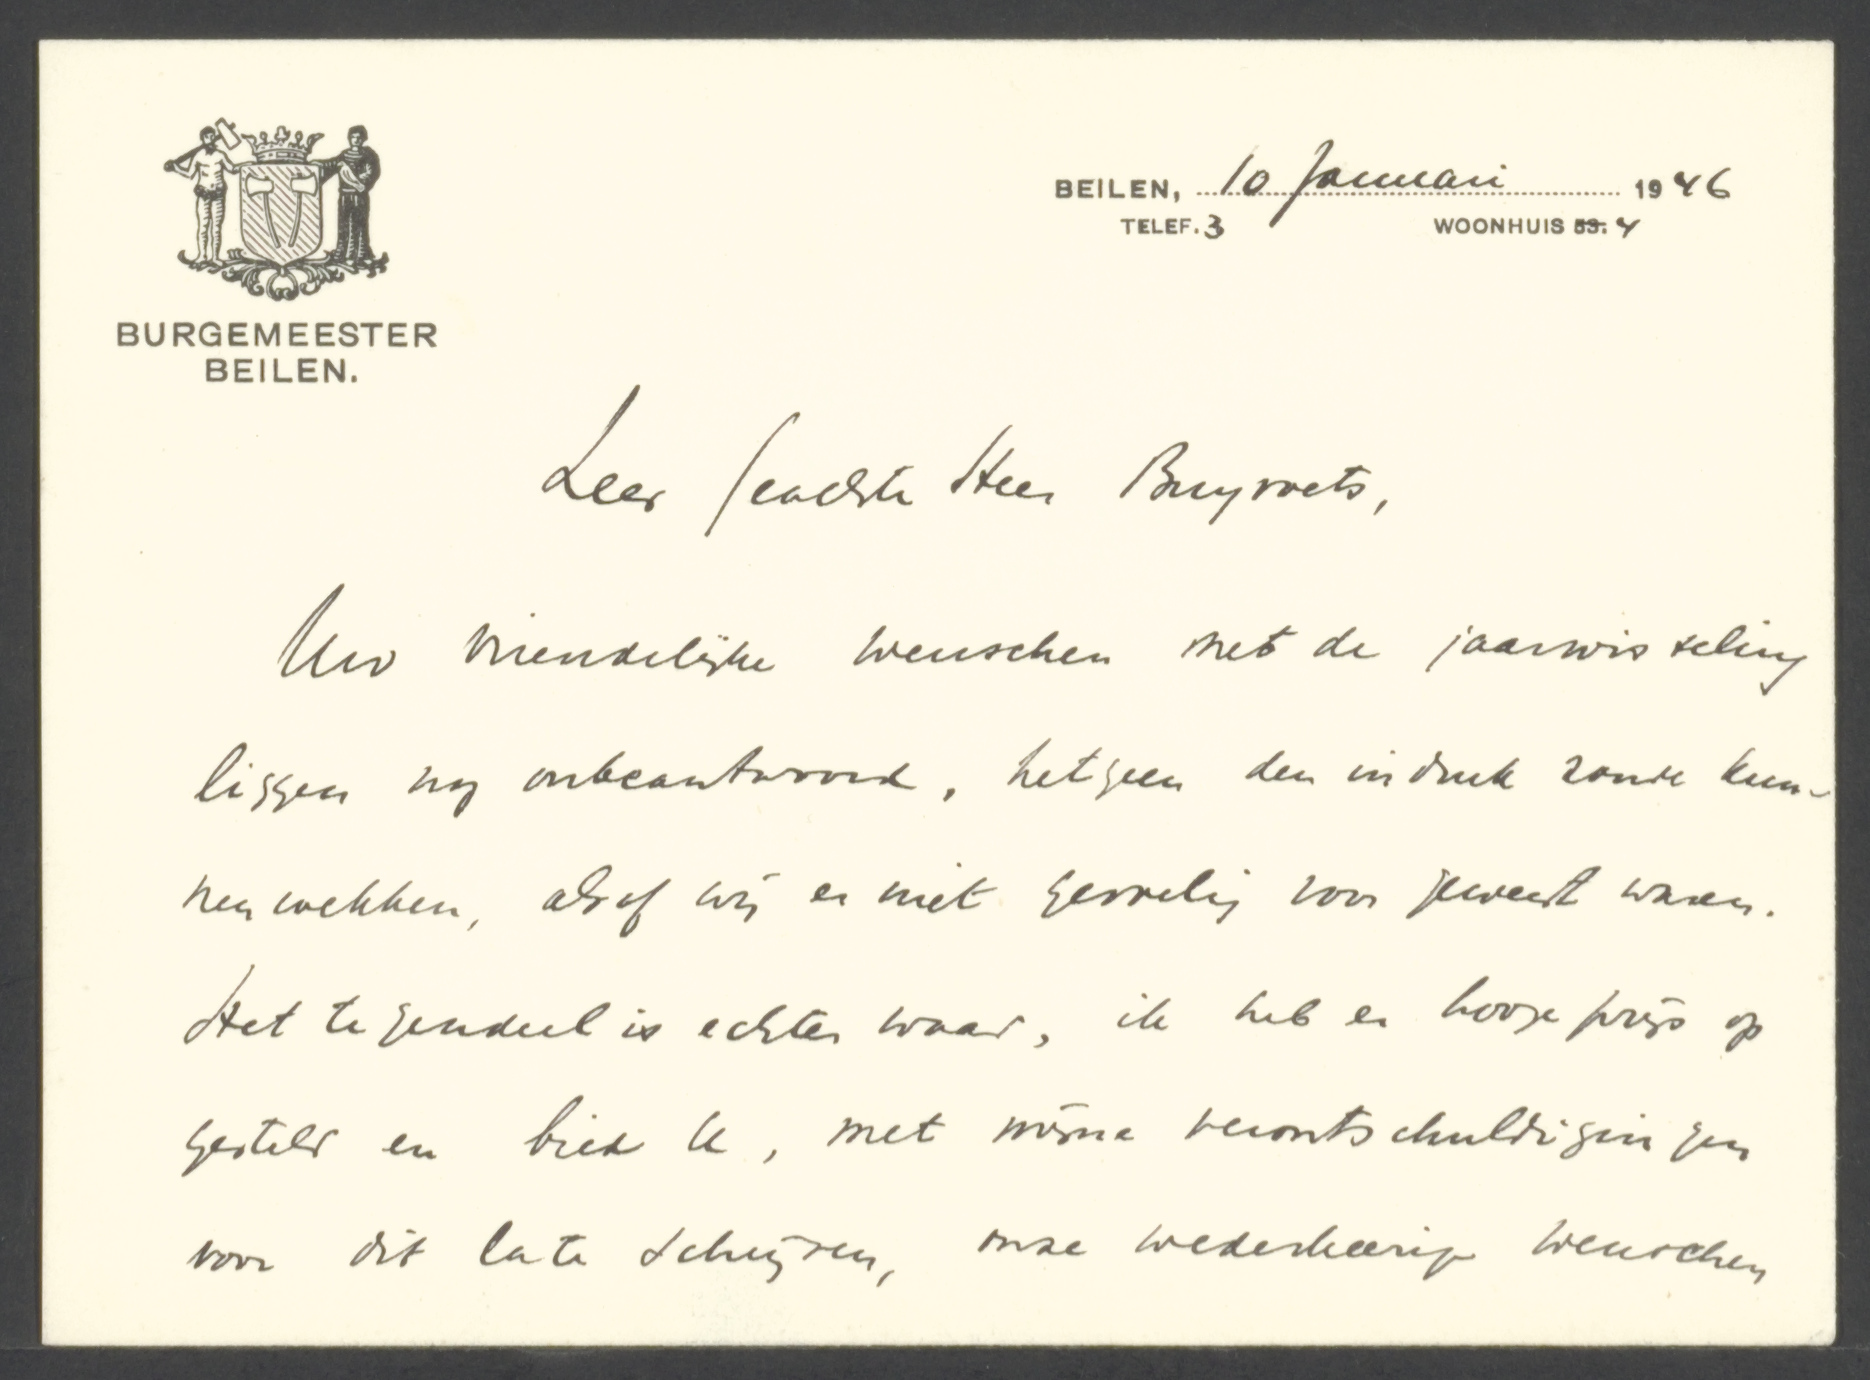 BURGEMEESTER
BEILEN.
BEILEN, 10 Januari 1946
TELEF. 3 WOONHUIS 53. 4
Zeer geachte Heer Buyvoets,
Uw vriendelijke wenschen met de jaarwisseling
liggen nog onbeantwoord, hetgeen den indruk zoude kun-
nen wekken, alsof wij er niet gevoelig voor geweest waren.
Het tegendeel is echter waar, ik heb er hooge prijs op
gesteld en bied U, met mijne verontschuldigingen
voor dit late schrijven, onze wederkeerige wenschen